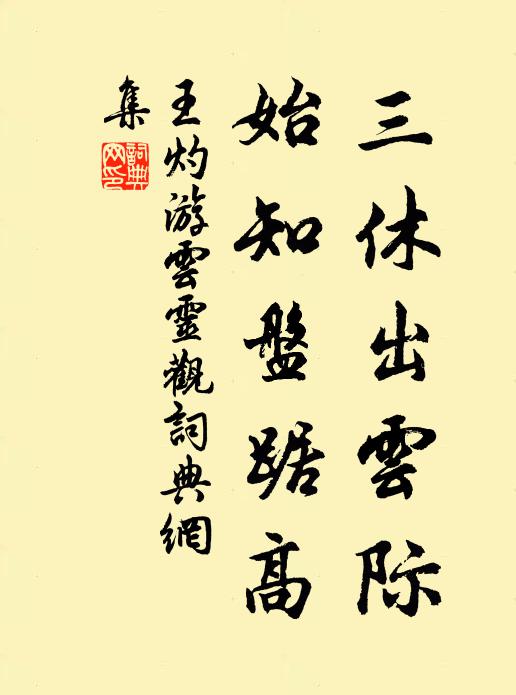 三休出雲际
始知盤踞高
王灼游雲靈觀詞典網
集
詞典
网印